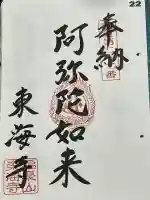 22
奉納
阿弥陀如来
東海寺